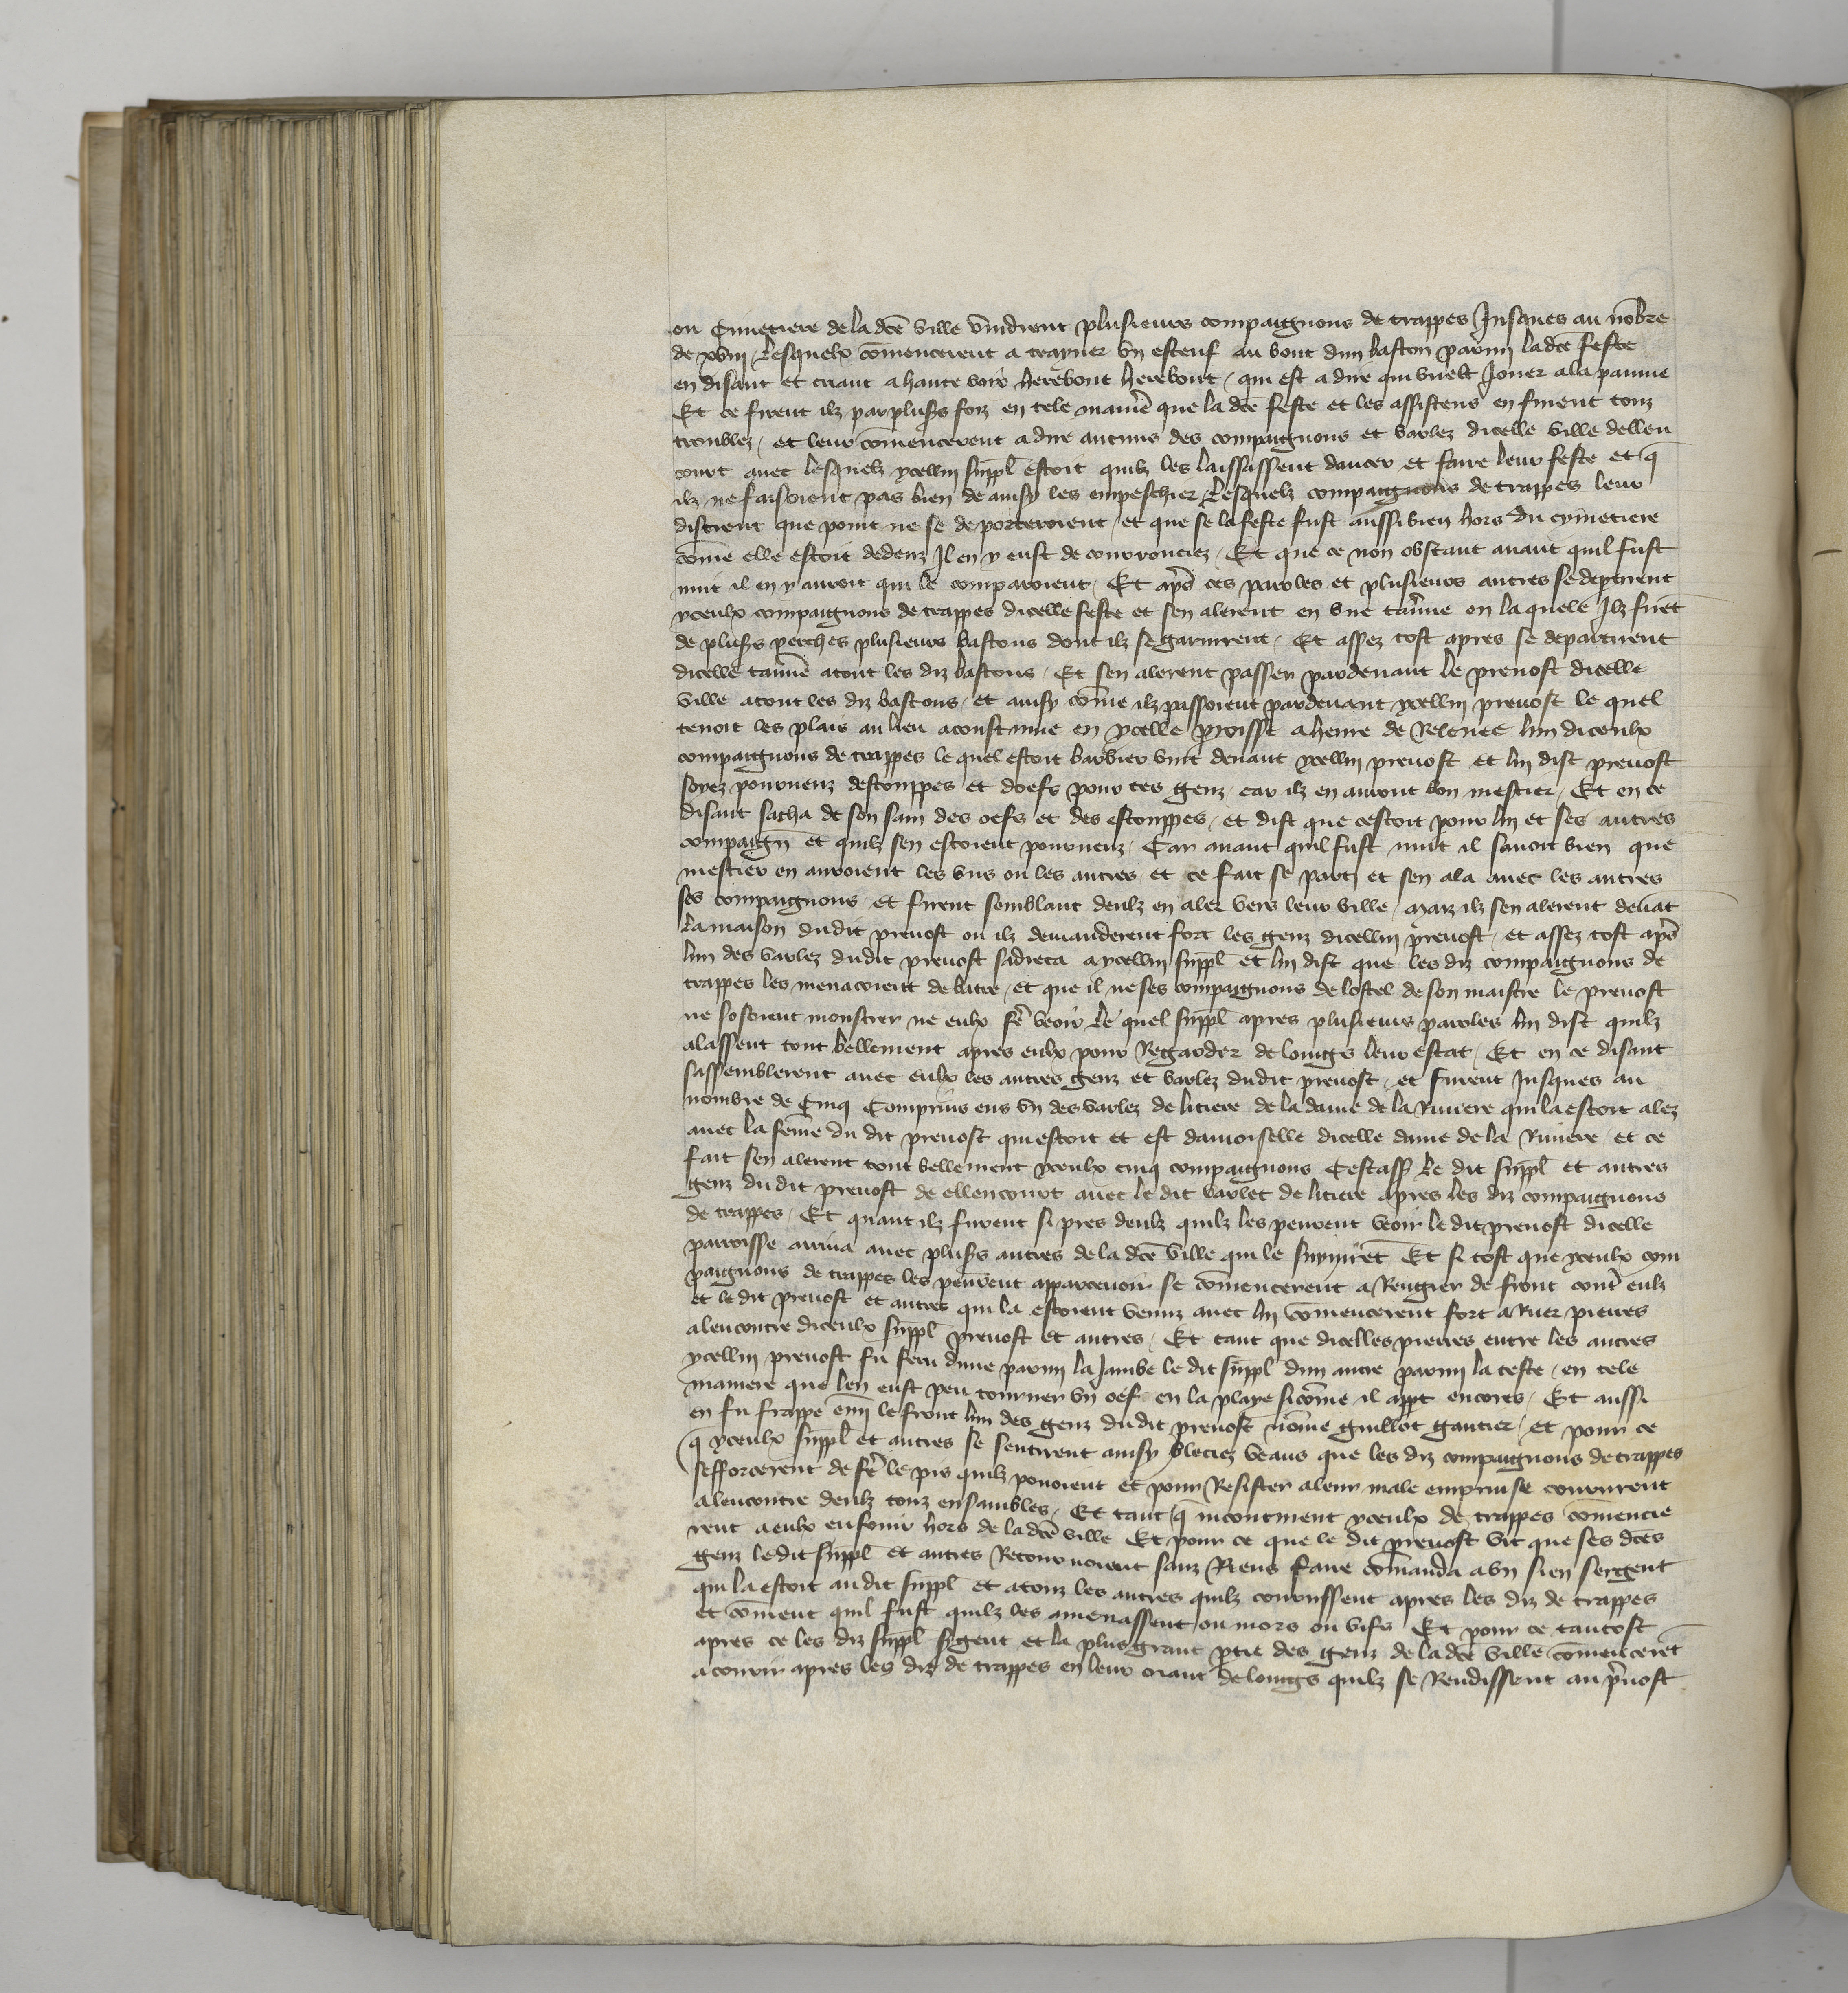 ou Cimetiere de la dcē ville vindrent plusieurs compaignons de trappes Jusques au nōbre
de xviij. Lesquelx cōmencerent a trayner vn esteuf au bout dun baston parmi la dcē feste
en disant et criant a haute voix herebout herebout / qui est a dire qui vuelt Jouer a la paume
Et ce firent ilz par plusrs foiz en tele manie que la dcē feste et les assistens en furent touz
troublez / et leur cōmencerent a dire aucuns des compaignons et varlez dicelle ville dellen
court auec lesquelz ycellui suppl estoit quilz les laississent dancer et faire leur feste et q̄
ilz ne faisoient pas bien de ainsy les empeschier / Lesquelz compaignons de trappes leur
distrent que point ne se deporteroient / et que se la feste fust aussi bien hors du cymetiere
cōme elle estoit dedenz Il en y eust de courrouciez / Et que ce non obstant auant quil fust
nuit il en y auroit qui le comparroient / Et ap̄s ces paroles et plusieurs autres se deptirent
yceulx compaignons de trappes dicelle feste et sen alerent en vne tauͬne en la quele Ilz firēt
de plusrs perches plusieurs bastons dont ilz se garnirent / Et assez tost apres se departirent
dicelle tauͬne atout les diz bastons / Et sen alerent passer pardeuant le preuost dicelle
ville atout les diz bastons / et ainsy cōme ilz passoient pardeuant ycellui preuost le quel
tenoit les plais au lieu acoustume en ycelle proisse a heure de Releuee lun diceulx
compaignons de trappes le quel estoit barbier vint deuant ycellui preuost et lui dist preuost
soyez pourueuz destouppes et doefs pour ces genz / car ilz en auront bon mestier / Et en ce
disant sacha de son sain des oefs et des estouppes / et dist que cestoit pour lui et ses autres
compaign̄ et quilz sen estoient pourueuz / Car auant quil fust nuit il sauoit bien que
mestier en auroient les vns ou les autres / et ce fait se parti et sen ala auec les autres
ses compaignons / et firent semblant deulz en aler vers leur ville / maiz ilz sen alerent deuāt
La maison dudit preuost ou ilz demanderent fort les genz dicellui preuost / et assez tost ap̄s
lun des varlez dudit preuost sadreca a ycellui suppl et lui dist que les diz compaignons de
trappes les menacoient de batre / et que il ne ses compaignons de lostel de son maistre le preuost
ne sosoient monstrer ne eulx fē veoir Le quel suppl apres plusieurs paroles lui dist quilz
alassent tout bellement apres eulx pour Regarder de loings leur estat / Et en ce disant
sassemblerent auec eulx les autres genz et varlez dudit preuost / et furent Jusques au
nombre de Cinq Comprins ens vn des varlez de litiere de la dame de la Riuiere qui la estoit alez
auec la feme du dit preuost qui estoit et est damoiselle dicelle dame de la Riuiere / et ce
fait sen alerent tout bellement yceulx cinq compaignons Cestass le dit suppl et autres
genz du dit preuost de ellencourt auec le dit varlet de litiere apres les diz compaignons
de trappes / Et quant ilz furent si pres deulz quilz les peurent veoir le dit preuost dicelle
parroisse arriua auec plusrs autres de la dcē ville qui le suyuirēt Et si tost que yceulx com
paignons de trappes les peurent apparceuoir se cōmencerent a Rengier de front contͬ eulz
et le dit preuost et autres qui la estoient venuz auec lui cōmencerent fort a Ruer pierres
alencontre diceulx suppl preuost et autres / Et tant que dicelles pierres entre les autres
ycellui preuost fu feru dune parmi la Jambe le dit suppl dun autre parmi la teste / en tele
maniere que len eust peu tourner vn oef en la playe sicōme il appt encores / Et aussi
en fu frappe emi le front lun des genz dudit preuost nōme guillot gautier / et pour ce
q̄ yceulx suppl et autres se sentirent ainsy bleciez veans que les diz compaignons de trappes
sefforcerent de fē le pis quilz pouoient et pour Resister a leur male emprinse coururent
alencontre deulz touz ensambles / Et tant q̄ incontinent yceulx de trappes cōmencie
rent a eulx enfouir hors de la dcē ville Et pour ce que le dit preuost vit que ses dces
genz le dit suppl et autres Retournoient sanz Riens faire cōmanda a vn sien sergent
qui la estoit au dit suppl et a touz les autres quilz courussent apres les diz de trappes
et cōment quil fust quilz les amenassent ou mors ou vifs Et pour ce tantost
apres ce les diz suppl sͬgent et la plus grant ptie des genz de la dcē ville cōmencerēt
a courir apres les diz de trappes en leur criant de loings quilz se Rendissent au pͬuost